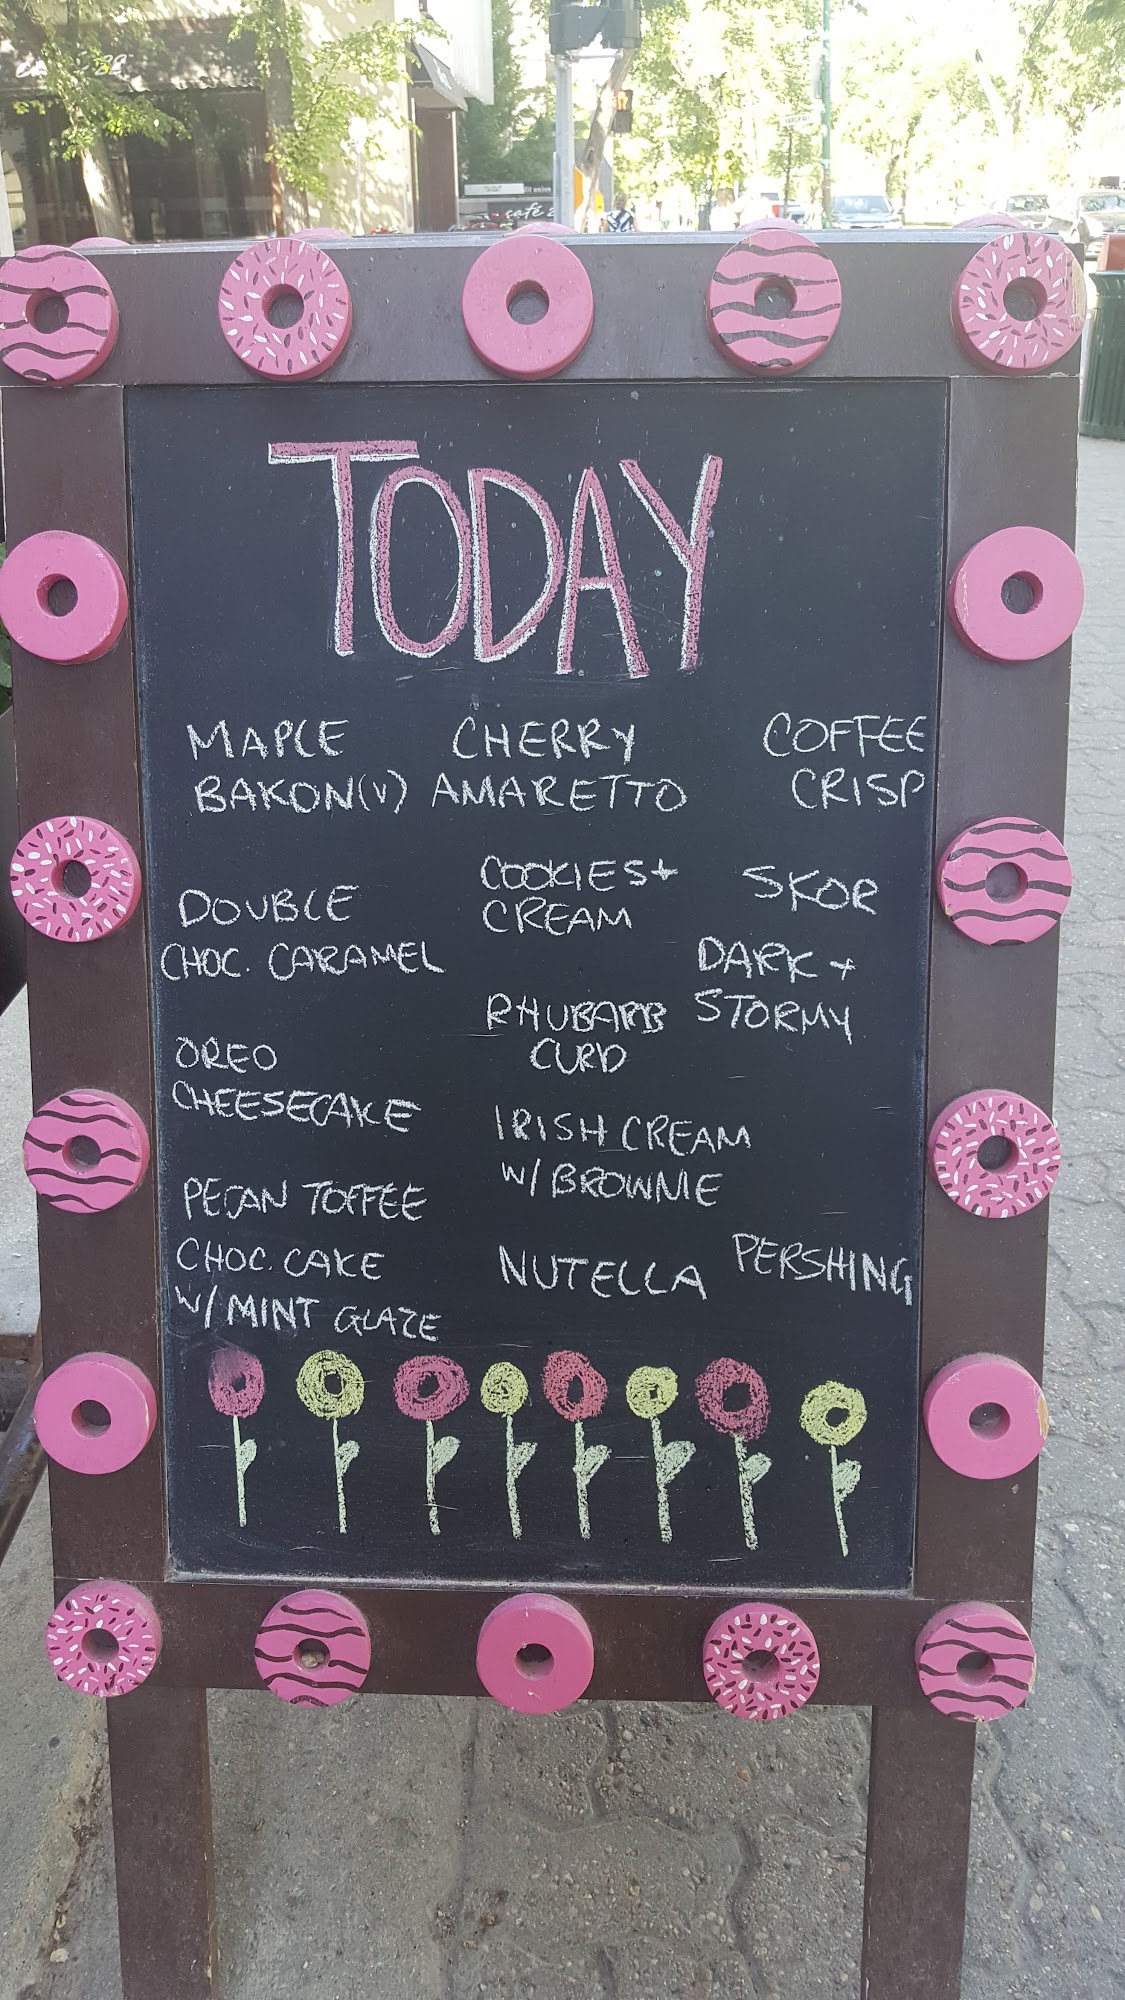 café
TODAY
MAPLE
BAKON(V)
CHERRY
AMARETTO
COFFEE
CRISP
DOUBLE
CHOC. CARAMEL
COOKIES+
CREAM
SKOR
DARK +
STORMY
RHUBARB
CURD
OREO
CHEESECAKE
IRISH CREAM
W/ BROWNIE
PECAN TOFFEE
CHOC. CAKE
W/ MINT GLAZE
NUTELLA
PERSHING